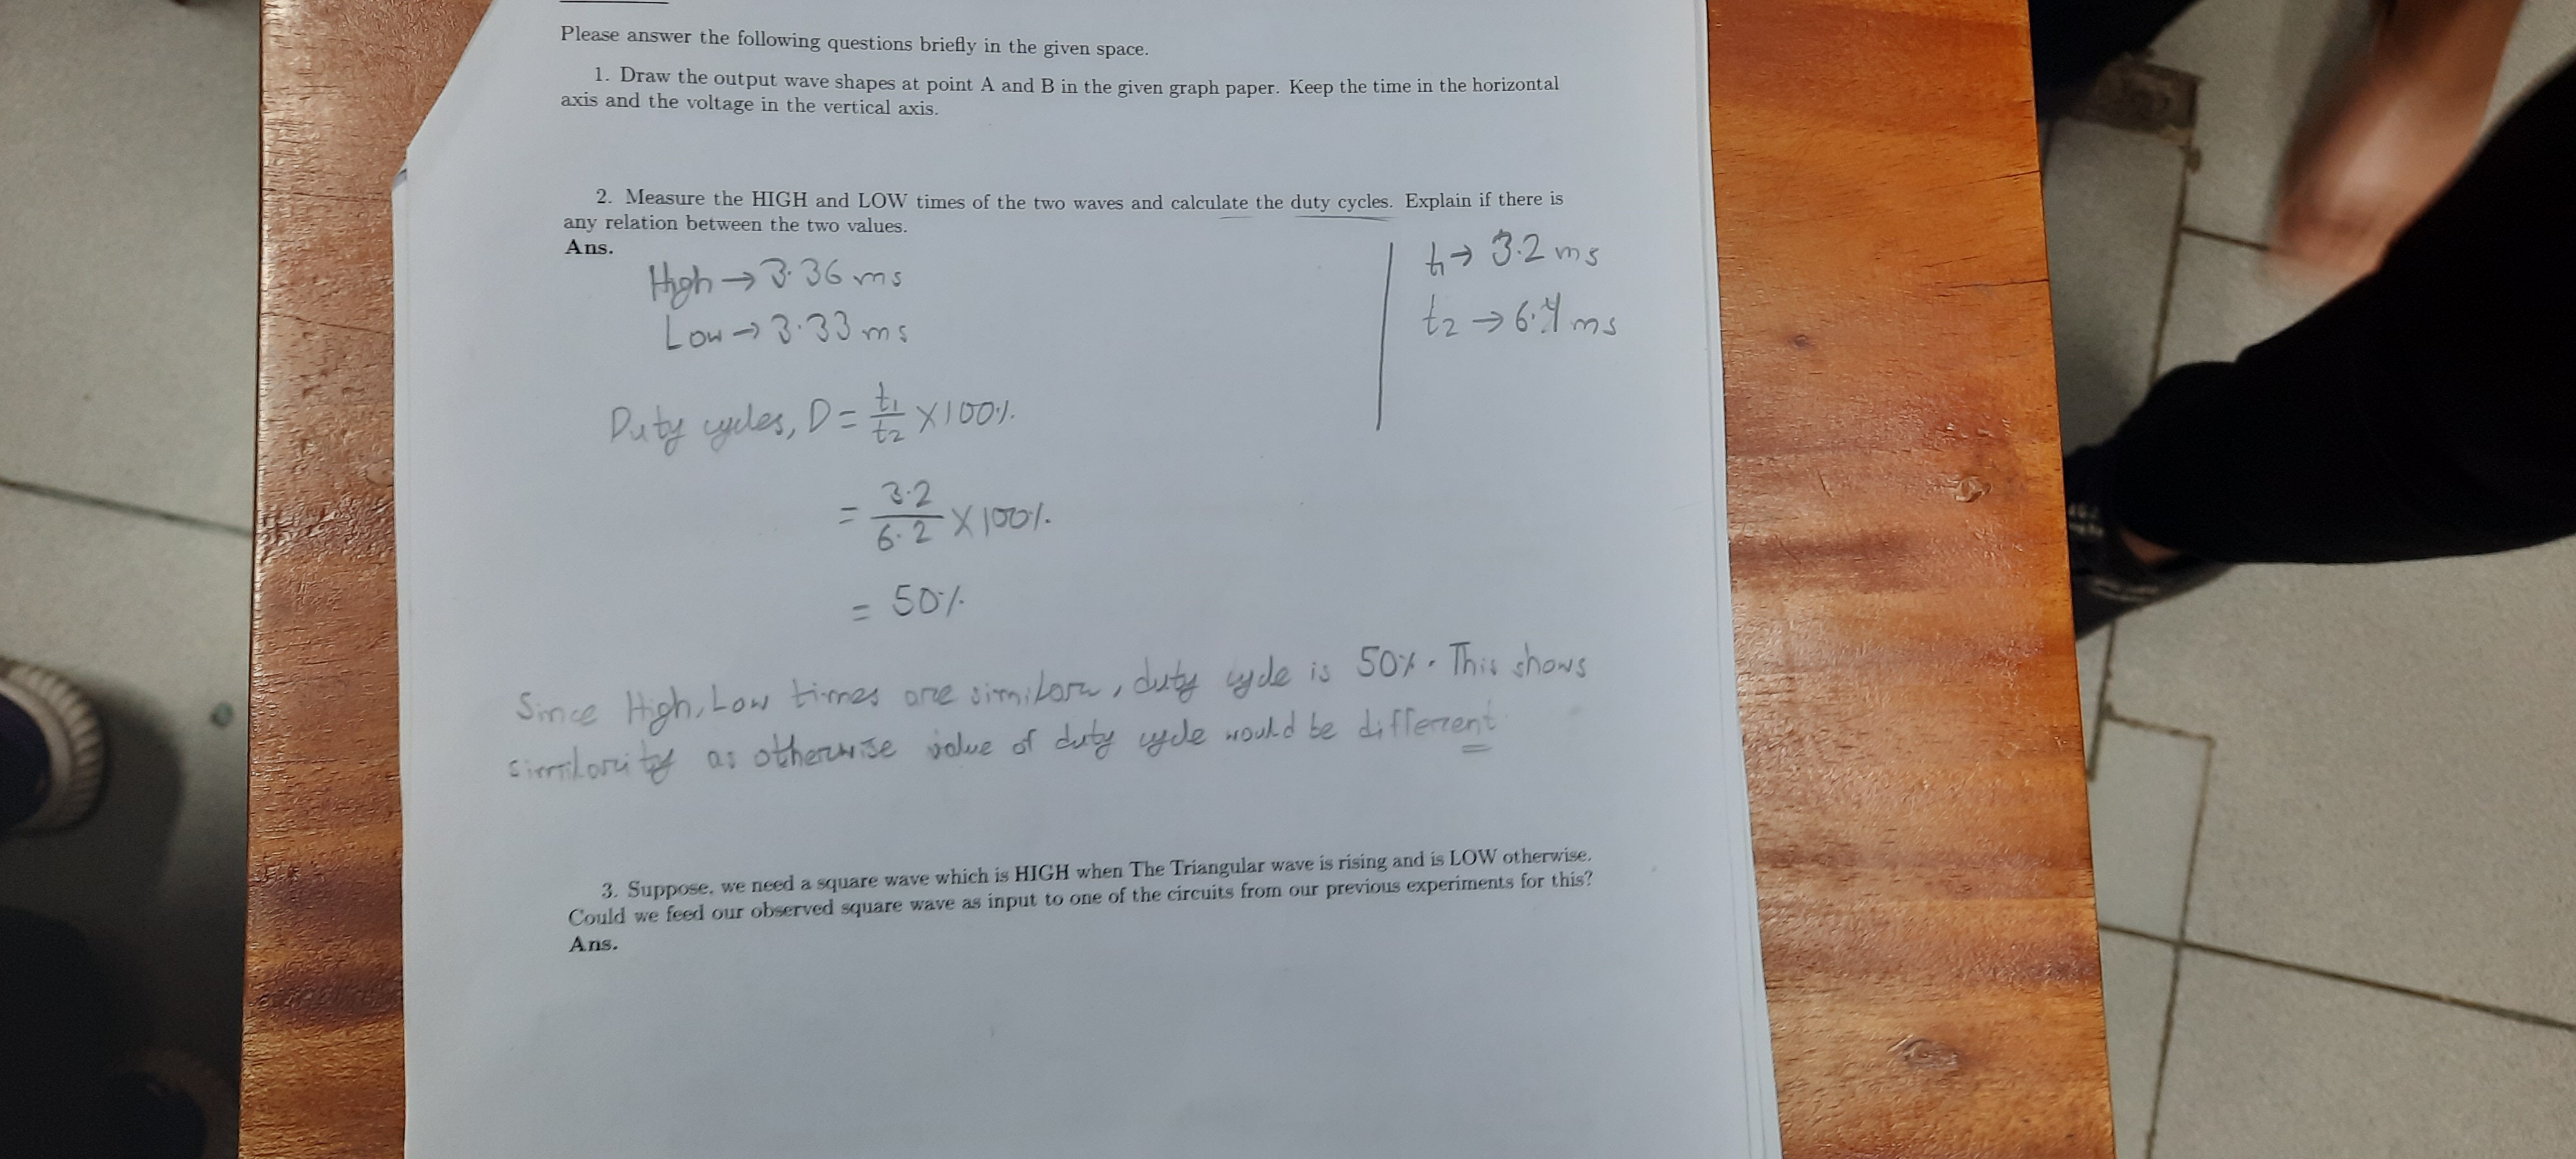 Please answer the following questions briefly in the given space.
1. Draw the output wave shapes at point A and B in the given graph paper. Keep the time in the horizontal
axis and the voltage in the vertical axis.
2. Measure the HIGH and LOW times of the two waves and calculate the duty cycles. Explain if there is
any relation between the two values.
Ans.
High → 3.36 ms
Low → 3.33 ms
t1 → 3.2 ms
t2 → ms
Duty cycles, D = t1/t2 × 100%
= 3.2/6.2 × 100%
= 50%
Since High, Low times are similar, duty cycle is 50%. This shows
similarity as otherwise value of duty cycle would be different
3. Suppose, we need a square wave which is HIGH when The Triangular wave is rising and is LOW otherwise.
Could we feed our observed square wave as input to one of the circuits from our previous experiments for this?
Ans.